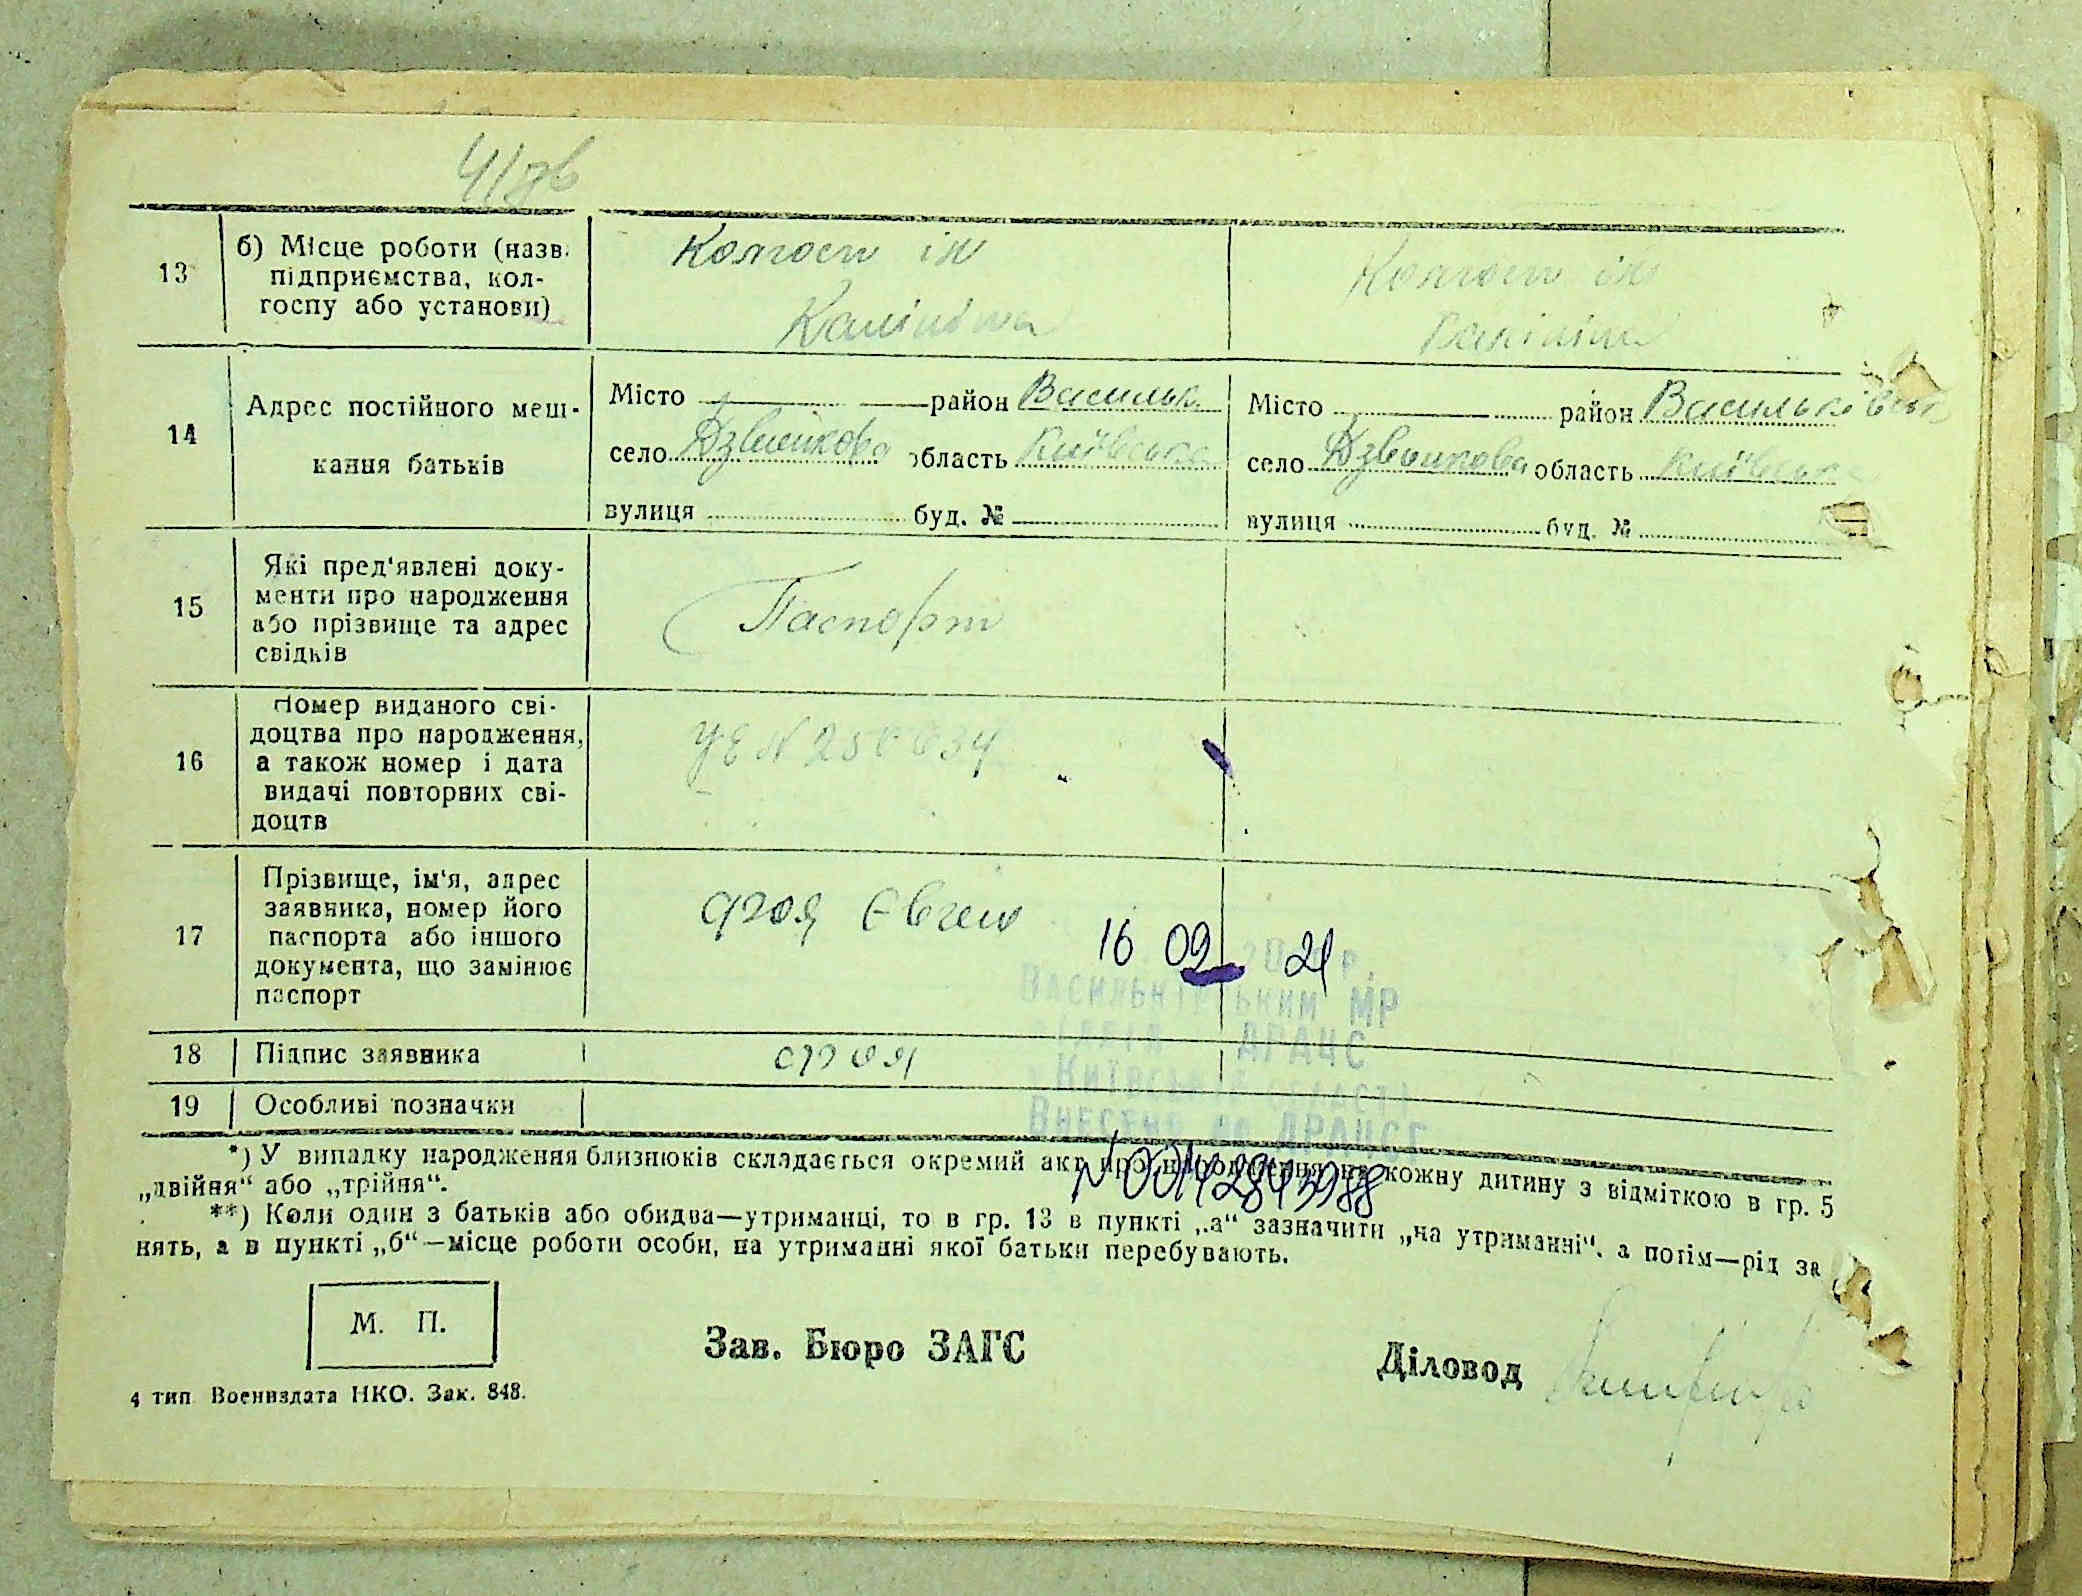 41 зв
13
б) Місце роботи (назв. підприємства, кол-
госпу або установи)
Колгосп ім
Калініна
Колгосп ім
Калініна
14
Адрес постійного меш-
кання батьків
Місто район Васильк.
село Дзвінкова область Київська
вулиця буд. №
Місто район Васильківськ
село Дзвонкова область Київськ
вулиця буд. №
15
Які пред'явлені доку-
менти про народження
або прізвище та адрес
свідків
Паспорт
16
Номер виданого сві-
доцтва про народження,
а також номер і дата
видачі повторних сві-
доцтв
УЕ N 250034
17
Прізвище, ім'я, адрес
заявника, номер його
паспорта або іншого
документа, що замінює
паспорт
Євген
16 09 21
Васильківським МР
ДРАЧС
Київської області
Внесено до ДРАЦСГ
N 00142843988
18 Підпис заявника
19 Особливі позначки
*) У випадку народження близнюків складається окремий акт про народження на кожну дитину з відміткою в гр. 5
„двійня“ або „трійня“.
**) Коли один з батьків або обидва—утриманці, то в гр. 13 в пункті „а“ зазначити „на утриманні“, а потім—рід за
нять, а в пункті „б“—місце роботи особи, на утриманні якої батьки перебувають.
М. П.
Зав. Бюро ЗАГС
Діловод
4 тип Воениздата НКО. Зак. 848.